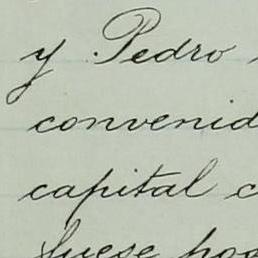 y Pedro
convenid
capital c
fuese pod